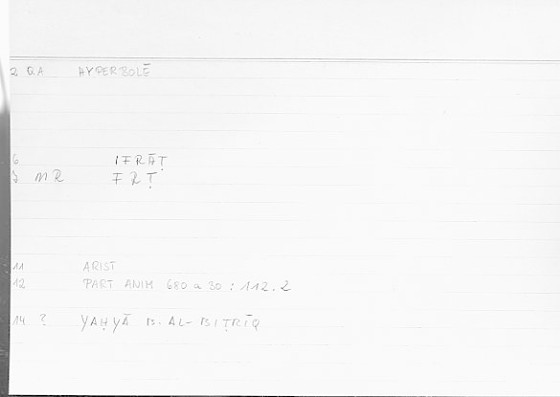 2 QA HYPERBOLĒ
6 IFRĀṬ
7 MR FRṬ
11 ARIST
12 PART ANIM 680 a 30 : 112.2
14 ? YAḤYĀ B. AL-BIṬRĪQ